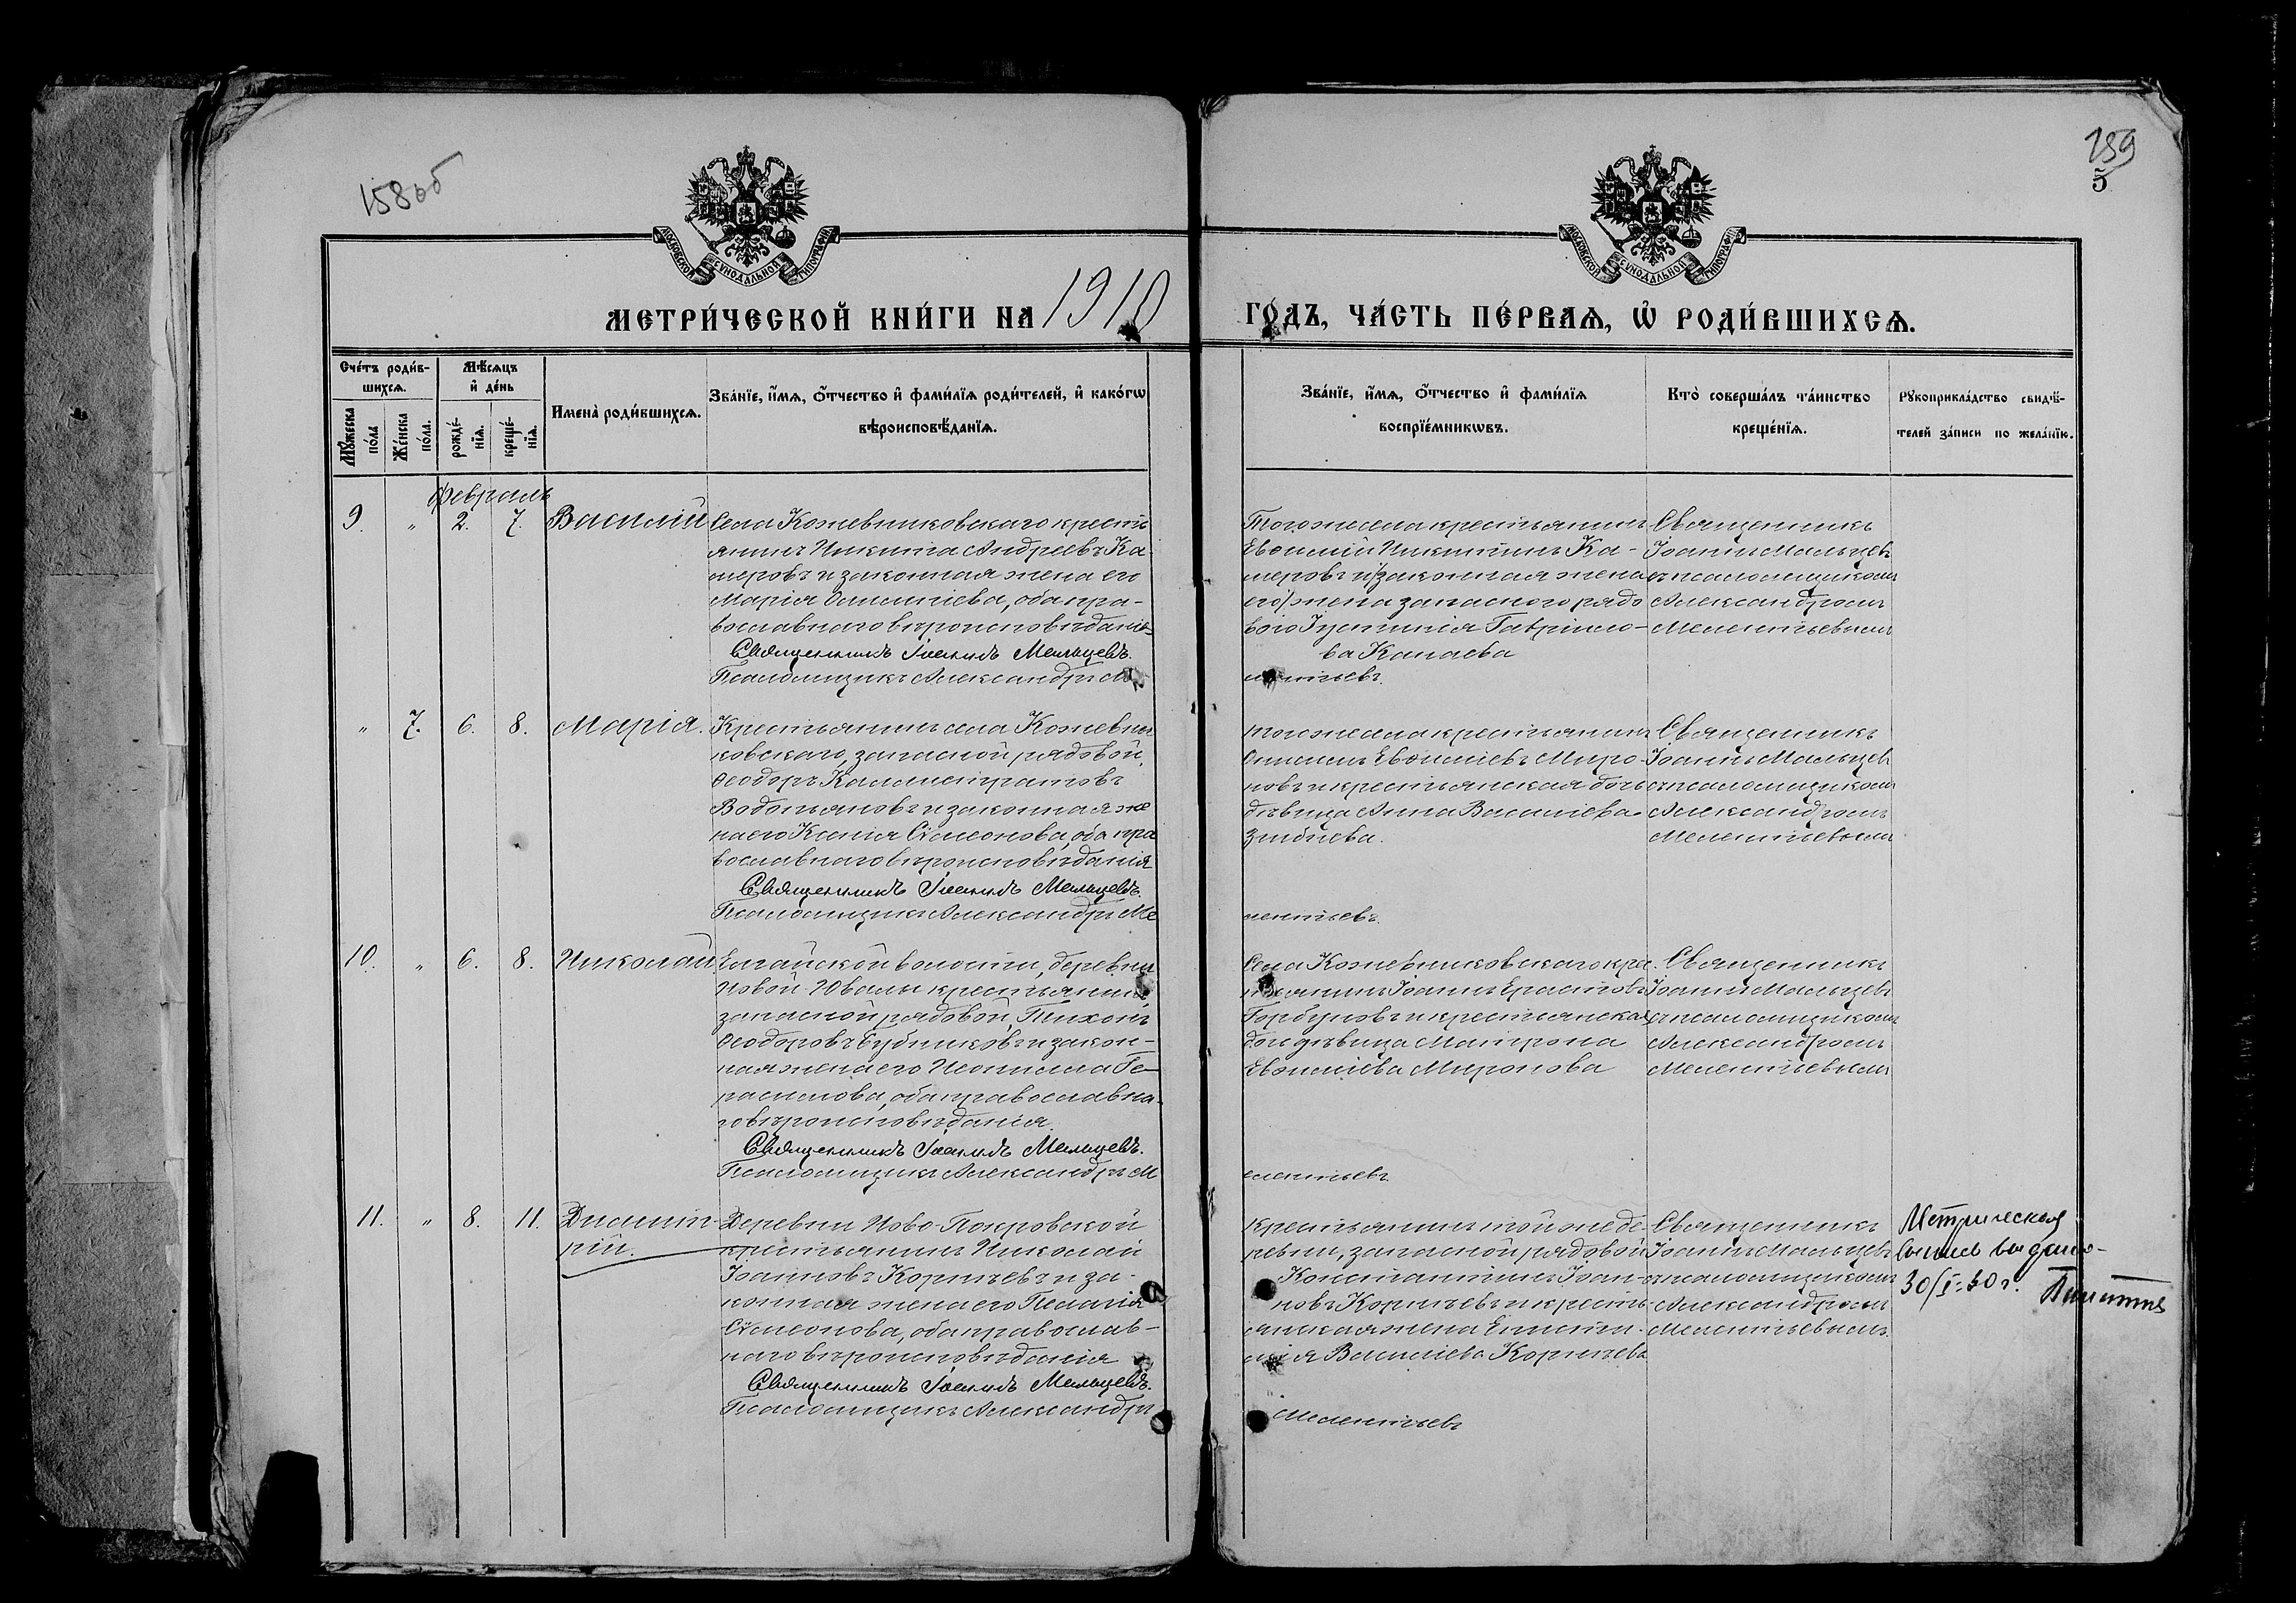 158об
159
5
МОСКОВСКОЙ СѴНОДАЛЬНОЙ ТИПОГРАФІИ
МОСКОВСКОЙ СѴНОДАЛЬНОЙ ТИПОГРАФІИ
МЕТРИ́ЧЕСКОЙ КНИ́ГИ НА 1910
ГО́ДЪ, ЧА́СТЬ ПЕ́РВАѦ, Ѡ҆ РОДИ́ВШИХСѦ.
Сче́тъ роди́в-
шихсѧ.
Мꙋ́жеска
по́ла
Же́нска
по́ла.
Мѣ́сѧцъ
и҆ де́нь
рожде́-
нїѧ.
креще́-
нїѧ.
И҆мена̀ роди́вшихсѧ.
Зва́нїе, и҆́мѧ, ѻ҆́тчество и҆ фами́лїѧ роди́телей, и҆ како́гѡ
вѣроисповѣ́данїѧ.
Зва́нїе, и҆́мѧ, ѻ҆́тчество и҆ фами́лїѧ
воспрїе́мникѡвъ.
Кто̀ соверша́лъ та́инство
креще́нїѧ.
Рꙋкоприкла́дство свидѣ́-
телей за́писи по жела́нїю.
Февраль
9. " 2. 7. Василій
Села Кожевниковскаго кресть
янинъ Никита Андреевъ Ка-
меровъ и законная жена его
Марія, оба пра-
вославнаго вѣроисповѣданія
Священникъ Іоаннъ Мальцевъ.
Псаломщикъ Александръ Ме-
Тогоже села крестьянинъ
Евѳимій Никитинъ Ка-
меровъ и/законная жена
его/жена запаснаго рядо
вого Іустинія Гавріило-
ва Канаева
лентьевъ.
Священникъ
Іоаннъ Мальцевъ
съ псаломщикомъ
Александромъ
Мелентьевымъ
" 7. 6. 8. Марія.
Крестьянинъ села Кожевни
ковскаго, запасной рядовой,
Ѳеодоръ Каллистратовъ
Водопьяновъ и законная же
на его Ксенія Сѵмеонова, оба пра
вославнаго вѣроисповѣданія
Священникъ Іоаннъ Мальцевъ.
Псаломщикъ Александръ Ме
тогоже села крестьянинъ
Евѳиміевъ Миро-
новъ и крестьянская дочь
дѣвица Анна Василіева
лентьевъ.
Священникъ
Іоаннъ Мальцевъ
съ псаломщикомъ
Александромъ
Мелентьевымъ
10. " 6. 8. Николай
Елгайской волости, деревни
Новой-Ювалы крестьянинъ,
запасной рядовой, Тихонъ
Ѳеодоровъ Бубниковъ и закон-
ная жена его Неонилла Ге-
расимова, оба православна-
го вѣроисповѣданія.
Священникъ Іоаннъ Мальцевъ.
Псаломщикъ Александръ М
Села Кожевниковскаго кре-
стьянинъ Іоаннъ Ерастовъ
Горбуновъ и крестьянская
дочь дѣвица Матрона
Евѳиміева Миронова
елентьевъ.
Священникъ
Іоаннъ Мальцевъ
съ псаломщикомъ
Александромъ
Мелентьевымъ
11. " 8. 11. Димит-
рій.
Деревни Ново-Покровской
крестьянинъ Николай
Іоанновъ Коричевъ и за-
конная жена его Пелагія
Сѵмеонова, оба православ-
наго вѣроисповѣданія
Священникъ Іоаннъ Мальцевъ.
Псаломщикъ Александръ
крестьянинъ той же де-
ревни, запасной рядовой
Константинъ Іоан-
новъ Коричевъ и кресть-
янская жена
Василіева Коричева
Мелентьевъ
Священникъ
Іоаннъ Мальцевъ
съ псаломщикомъ
Александромъ
Мелентьевымъ.
Метрическая
выпись выдана-